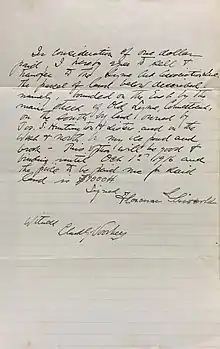 In consideration of one dollar
paid, I hereby agree to sell &
transfer to the Lyme Art Association Inc.
the parcel of land below described,
namely, bounded on the East by the
main street of Old Lyme, Connecticut,
on the South by land owned by
Jos. S. Huntington & sister and on the
West & north by my land and
brook - This offer will be good &
binding until Oct 1st 1916 and
the price to be paid me for said
land is $1000.
Signed
Florence Griswold
Witness
Clark G. Voorhees